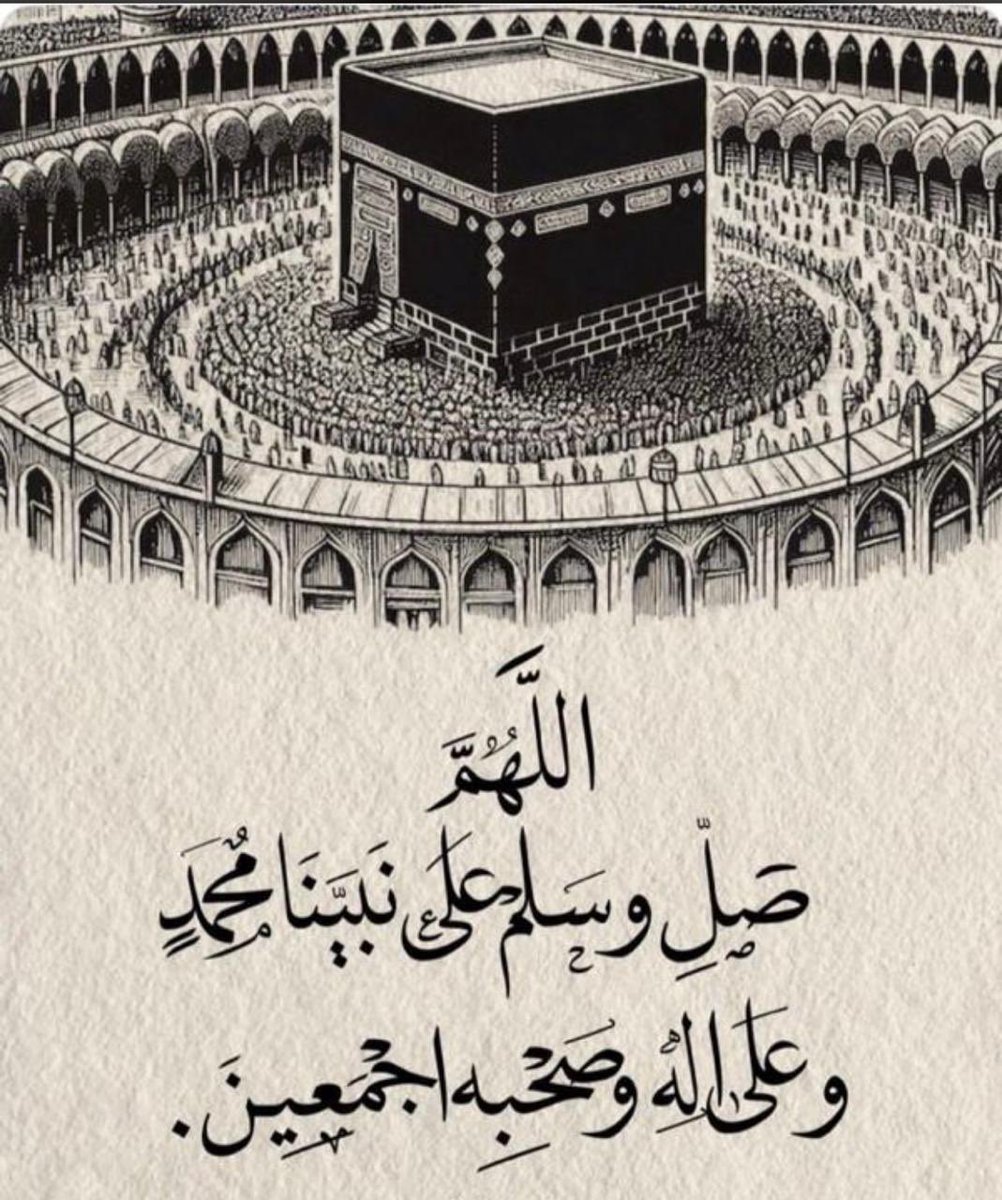 اللَّهُمَّ
صَلِّ وسَلم عَلَى نَبيَّنَا مُحَمَدٍ
وعَلَى الهِ وصَحْبِه اجْمَعِينَ.